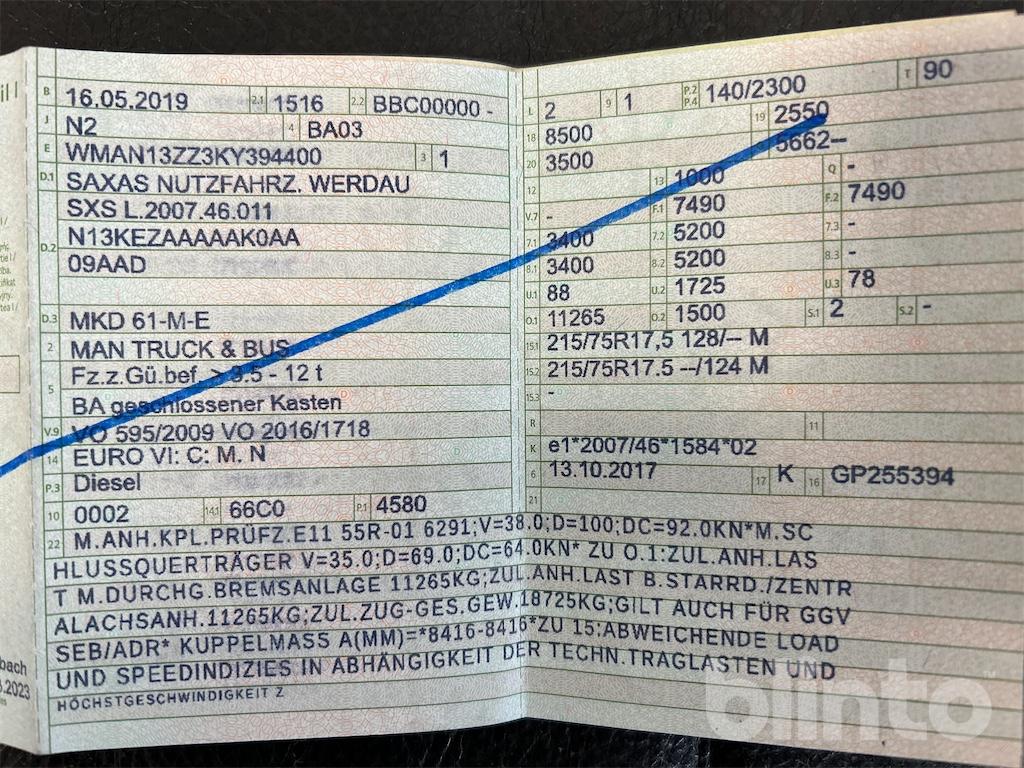 B 16.05.2019 2.1 1516 2.2 BBC00000 -
J N2 4 BA03
E WMAN13ZZ3KY394400 3 1
D.1 SAXAS NUTZFAHRZ. WERDAU
SXS L.2007.46.011
D.2 N13KEZAAAAAK0AA
09AAD
D.3 MKD 61-M-E
2 MAN TRUCK & BUS
5 Fz.z.Gü.bef. > 3.5 - 12 t
BA geschlossener Kasten
V.9 VO 595/2009 VO 2016/1718
14 EURO VI: C: M. N
P.3 Diesel
10 0002 14.1 66C0 P.1 4580
L 2 9 1 P.2 P.4 140/2300 T 90
18 8500 19 2550
20 3500 5662--
12 13 1000 Q -
V.7 - F.1 7490 F.2 7490
7.1 3400 7.2 5200 7.3 -
8.1 3400 8.2 5200 8.3 -
U.1 88 U.2 1725 U.3 78
O.1 11265 O.2 1500 S.1 2 S.2 -
15.1 215/75R17,5 128/-- M
15.2 215/75R17.5 --/124 M
15.3 -
R 11
K e1*2007/46*1584*02
6 13.10.2017 17 K 16 GP255394
21
22 M.ANH.KPL.PRÜFZ.E11 55R-01 6291;V=38.0;D=100;DC=92.0KN*M.SC
HLUSSQUERTRÄGER V=35.0;D=69.0;DC=64.0KN* ZU O.1:ZUL.ANH.LAS
T M.DURCHG.BREMSANLAGE 11265KG;ZUL.ANH.LAST B.STARRD./ZENTR
ALACHSANH.11265KG;ZUL.ZUG-GES.GEW.18725KG;GILT AUCH FÜR GGV
SEB/ADR* KUPPELMASS A(MM)=*8416-8416*ZU 15:ABWEICHENDE LOAD
UND SPEEDINDIZIES IN ABHÄNGIGKEIT DER TECHN.TRAGLASTEN UND
HÖCHSTGESCHWINDIGKEIT Z
bach
.2023
blinto